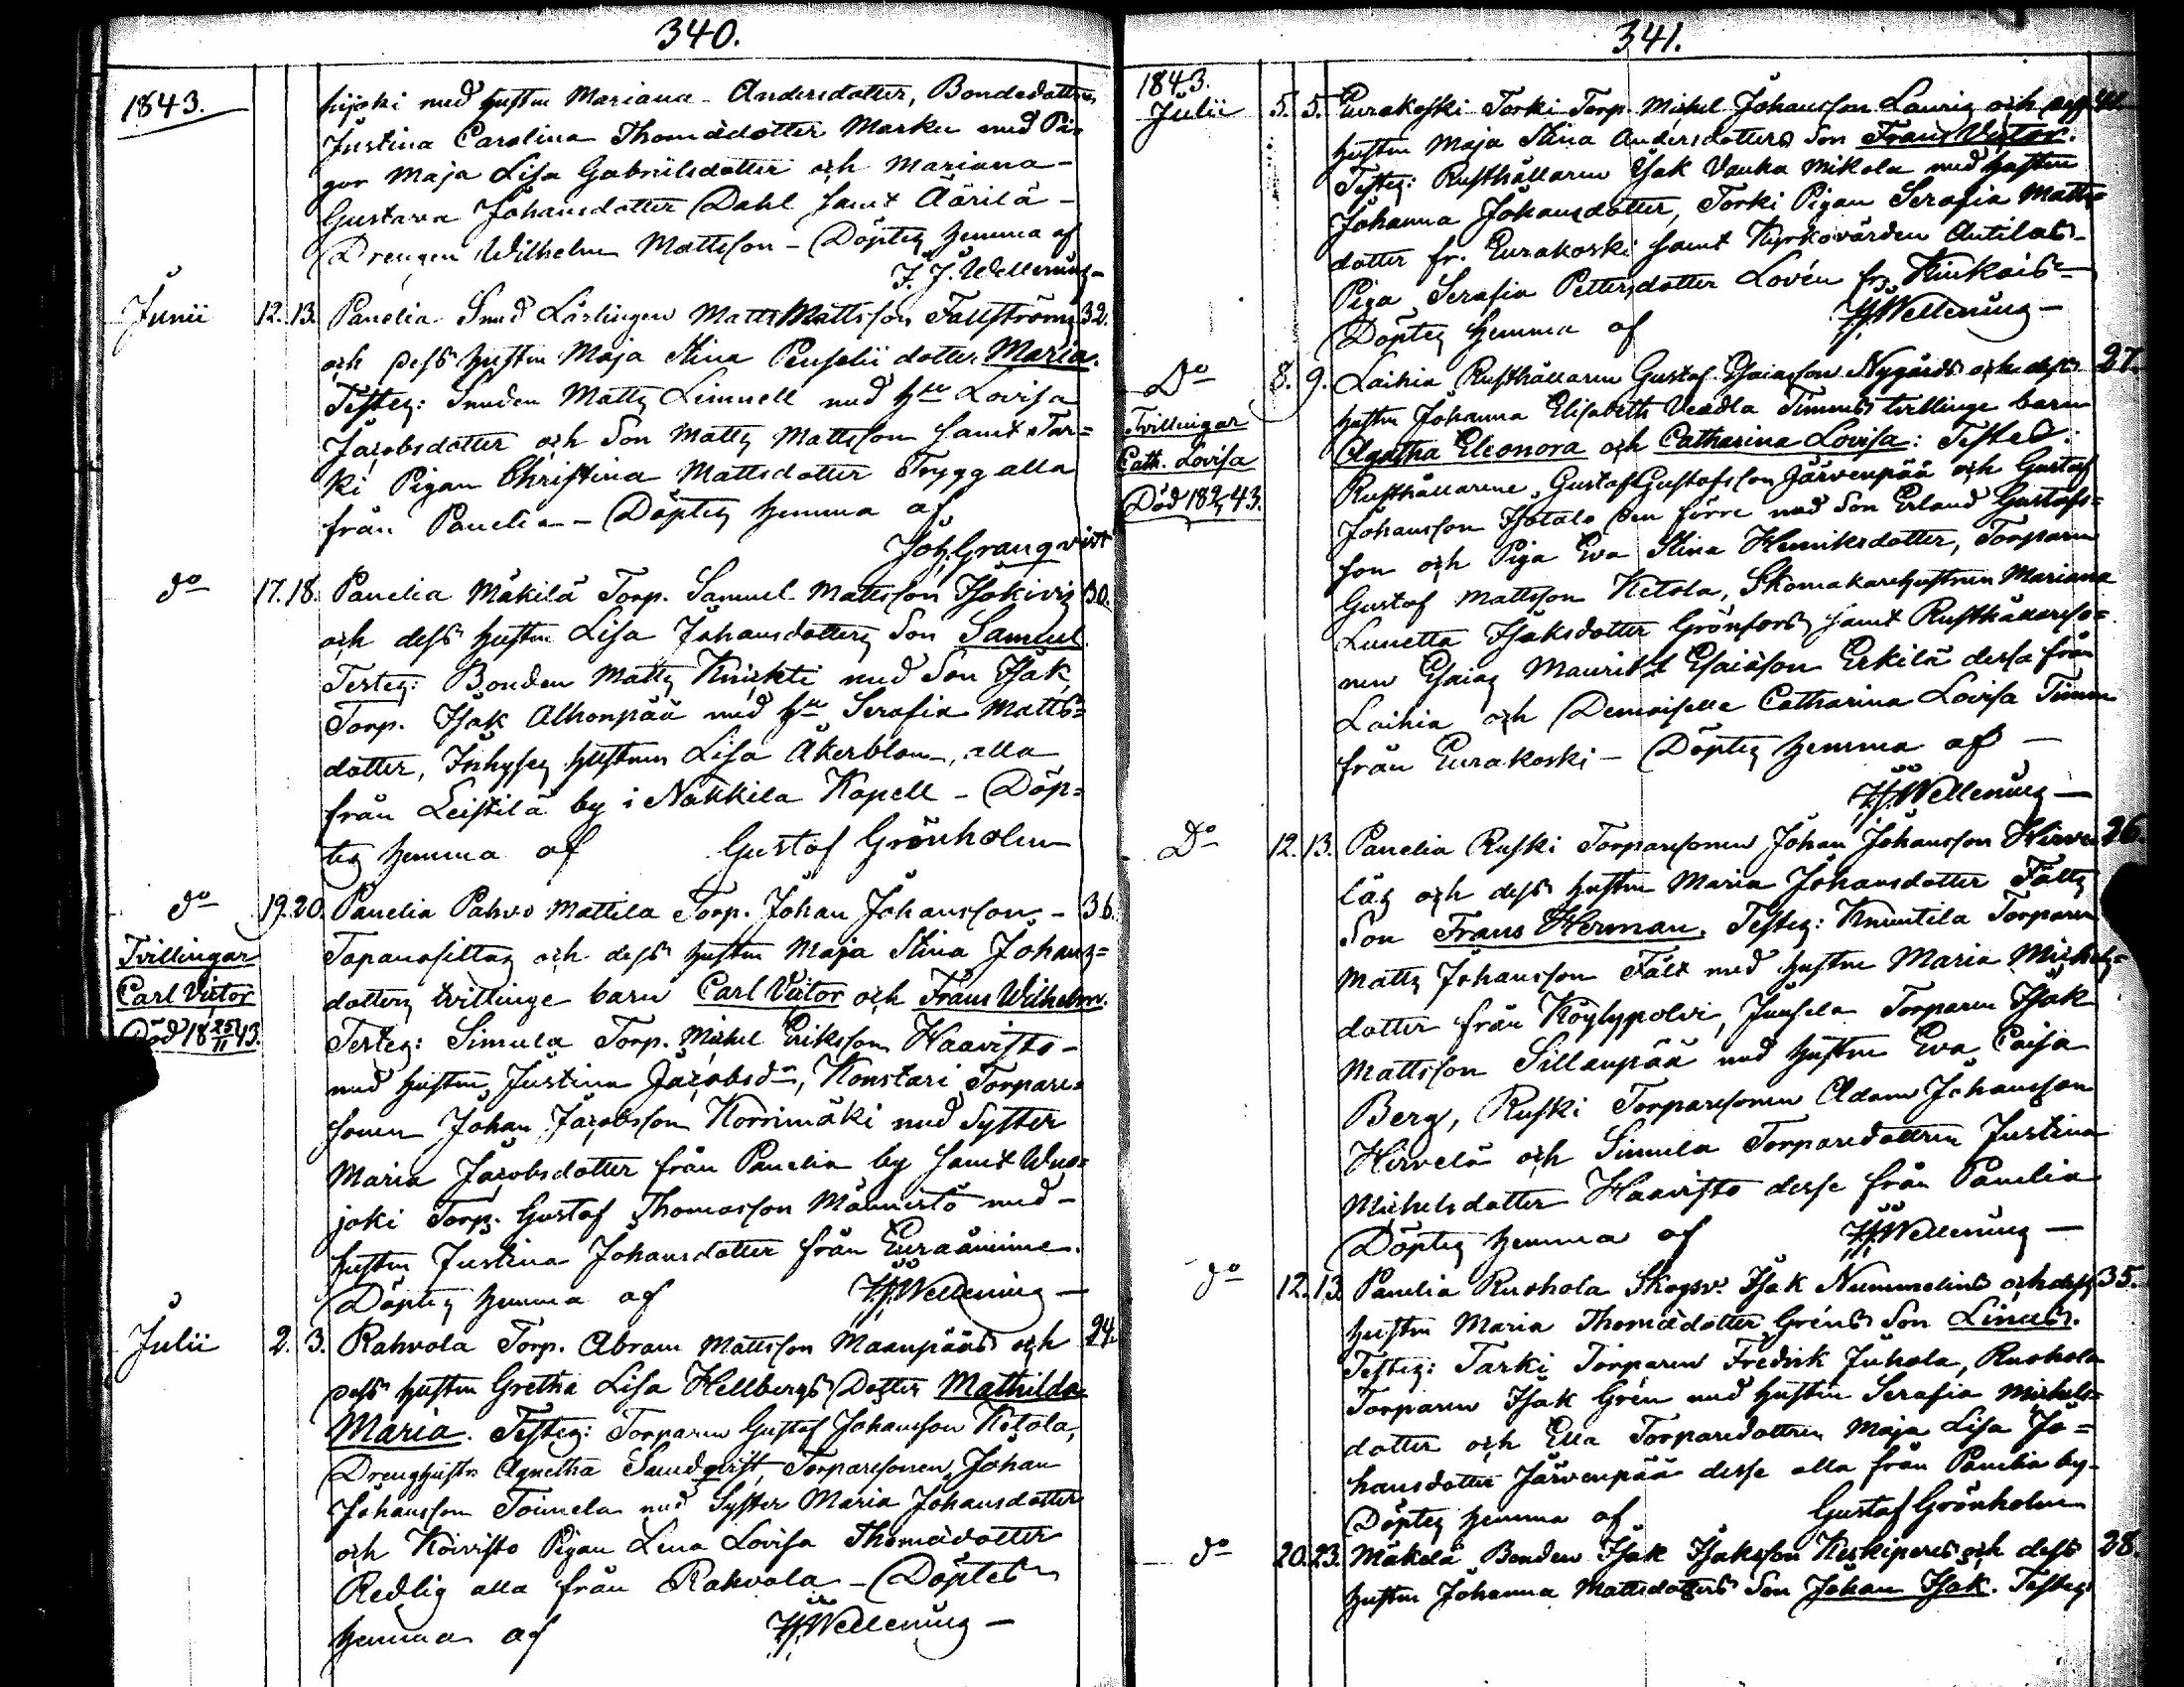 340.
1843.
hijoki med hustru Mariana Andersdotter, Bondedottren
Justina Carolina Thomädotter Marku med Pi-
gor Maja Lisa Gabrielsdotter och Mariana
Gustava Johansdotter Dahl samt Äärilä
Drengen Wilhelm Mattsson – Döptes hemma af
J. J. Wellenius
Junii 12. 13. Panelia Smed Lärlingen Matts Mattsson Fallströms 32.
och dess hustru Maja Stina Penselii dotter Maria.
Testes: Smeden Matts Limnell med hu Lovisa
Jacobsdotter och Son Matts Mattsson samt Tar=
ki Pigan Christina Mattsdotter Trygg alla
från Panelia – Döptes hemma af
Joh. Granqvist
do 17. 18. Panelia Mäkilä Torp. Samuel Mattsson Isokivis 30.
och dess hustru Lisa Johansdotters Son Samuel
Testes: Bonden Matts Knickti med Son Isak,
Torp. Isak Alhonpää med hu Serafia Matts=
dotter, Inhyses hustrun Lisa Åkerblom, alla
från Leistilä by i Nakkila Kapell – Döp=
tes hemma af Gustaf Grönholm
do 19. 20. Panelia Pahvo Mattila Torp. Johan Johansson – 36.
Tvillingar
Carl Victor
Död 18 25/11 43.
Tapanasillas och dess hustru Maja Stina Johans=
dotters tvillinge barn Carl Victor och Frans Wilhelm.
Testes: Simula Torp. Michel Eriksson Haavisto –
med hustru Justina Jacobsdr, Konstari Torpare=
sonen Johan Jacobsson Korrimäki med Syster
Maria Jacobsdotter från Panelia by samt Wuo=
joki Torp. Gustaf Thomasson Männistö med –
hustru Justina Johansdotter från Euraåminne.
Döptes hemma af J. J. Wellenius –
Julii 2. 3. Rahvola Torp. Abram Mattsson Maanpääs och 24.
dess hustru Gretha Lisa Hellbergs Dotter Mathilda
Maria. Testes: Torparen Gustaf Johansson Ketola,
Dreng hustr. Agnetha Sandqvist, Torparesonen Johan
Johansson Toimela med Syster Maria Johansdotter
och Koivisto Pigan Lena Lovisa Thomädotter
Redlig alla från Rahvola – Döptes
hemma af J. J. Wellenius –
341.
1843.
Julii 5. 5. Eurakoski Torki Torp. Michel Johansson Lauris och dess
hustru Maja Stina Andersdotters Son Frans Victor.
Testes: Rusthållaren Isak Vanha Mikola med hustru
Johanna Johansdotter, Torki Pigan Serafia Matts=
dotter fr. Eurakoski samt Kyrkovärden Antilas
Piga Serafia Pettersdotter Lovén fr.
Döptes hemma af J. J. Wellenius –
Do 8. 9. Laihia Rusthållaren Gustaf Esaiasson Nygårds och dess 27.
Tvillingar
Cath. Lovisa
hustru Johanna Elisabeth Vendla Timms tvillinge barn
Agatha Eleonora och Catharina Lovisa: Testes:
Rusthållarene Gustaf Gustafsson Järvenpää och Gustaf
Johansson Isotalo den förre med Son Erland Gustafs=
son och Piga Eva Stina Henriksdotter, Torparen
Gustaf Mattsson Ketola, Skomakare hustrun Mariana
Lunetta Isaksdotter Grönfors samt Rusthållareso=
nen Esaias Maurits Esaiasson Erkilä dessa från
Laihia och Demoiselle Catharina Lovisa Timm
från Eurakoski – Döptes hemma af –
J. J. Wellenius –
Do 12. 13. Panelia Ruski Torparesonen Johan Johansson Hirve 26
läs och dess hustru Maria Johansdotter Fälts
Son Frans Herman. Testes: Knuutila Torparen
Matts Johansson Fält med hustru Maria Michels=
dotter från Köylypolvi, Juusela Torparen Isak
Mattsson Sillanpää med hustru Eva Caisa
Berg, Ruski Torparesonen Adam Johansson
Hirvelä och Simula Torparedottren Justina
Michelsdotter Haavisto desse från Panelia
Döptes hemma af J. J. Wellenius –
do 12. 13. Panelia Ruohola Skogsv. Isak Nummelins och dess 35.
hustru Maria Thomädotter Gréns Son Linus.
Testes: Tarki Torparen Fredrik Juhola, Ruohola
Torparen Isak Grén med hustru Serafia Michels=
dotter och Ella Torparedottren Maja Lisa Jo=
hansdotter Järvenpää desse alla från Panelia by –
Döptes hemma af Gustaf Grönholm
do 20. 23. Mäkelä Bonden Isak Isaksson Keskiperes och dess 28.
hustru Johanna Mattsdotters Son Johan Isak. Testes